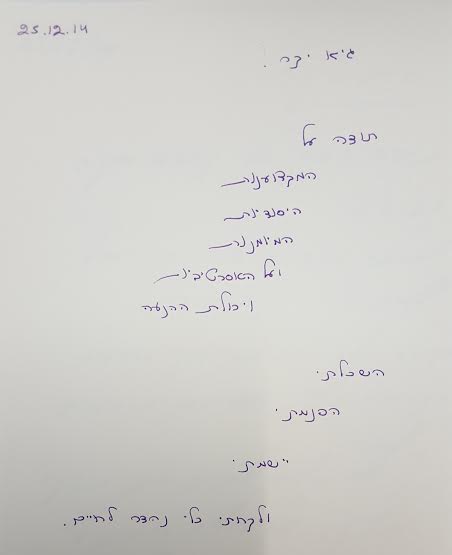 25.12.14
גיא יקר.
תודה על
המקצוענות
היסודיות
המיומנות
ועל האסרטיביות
ויכולת ההנעה
השכלתי.
הפנמתי.
יישמתי.
ולקחתי כלי נהדר לחיים.